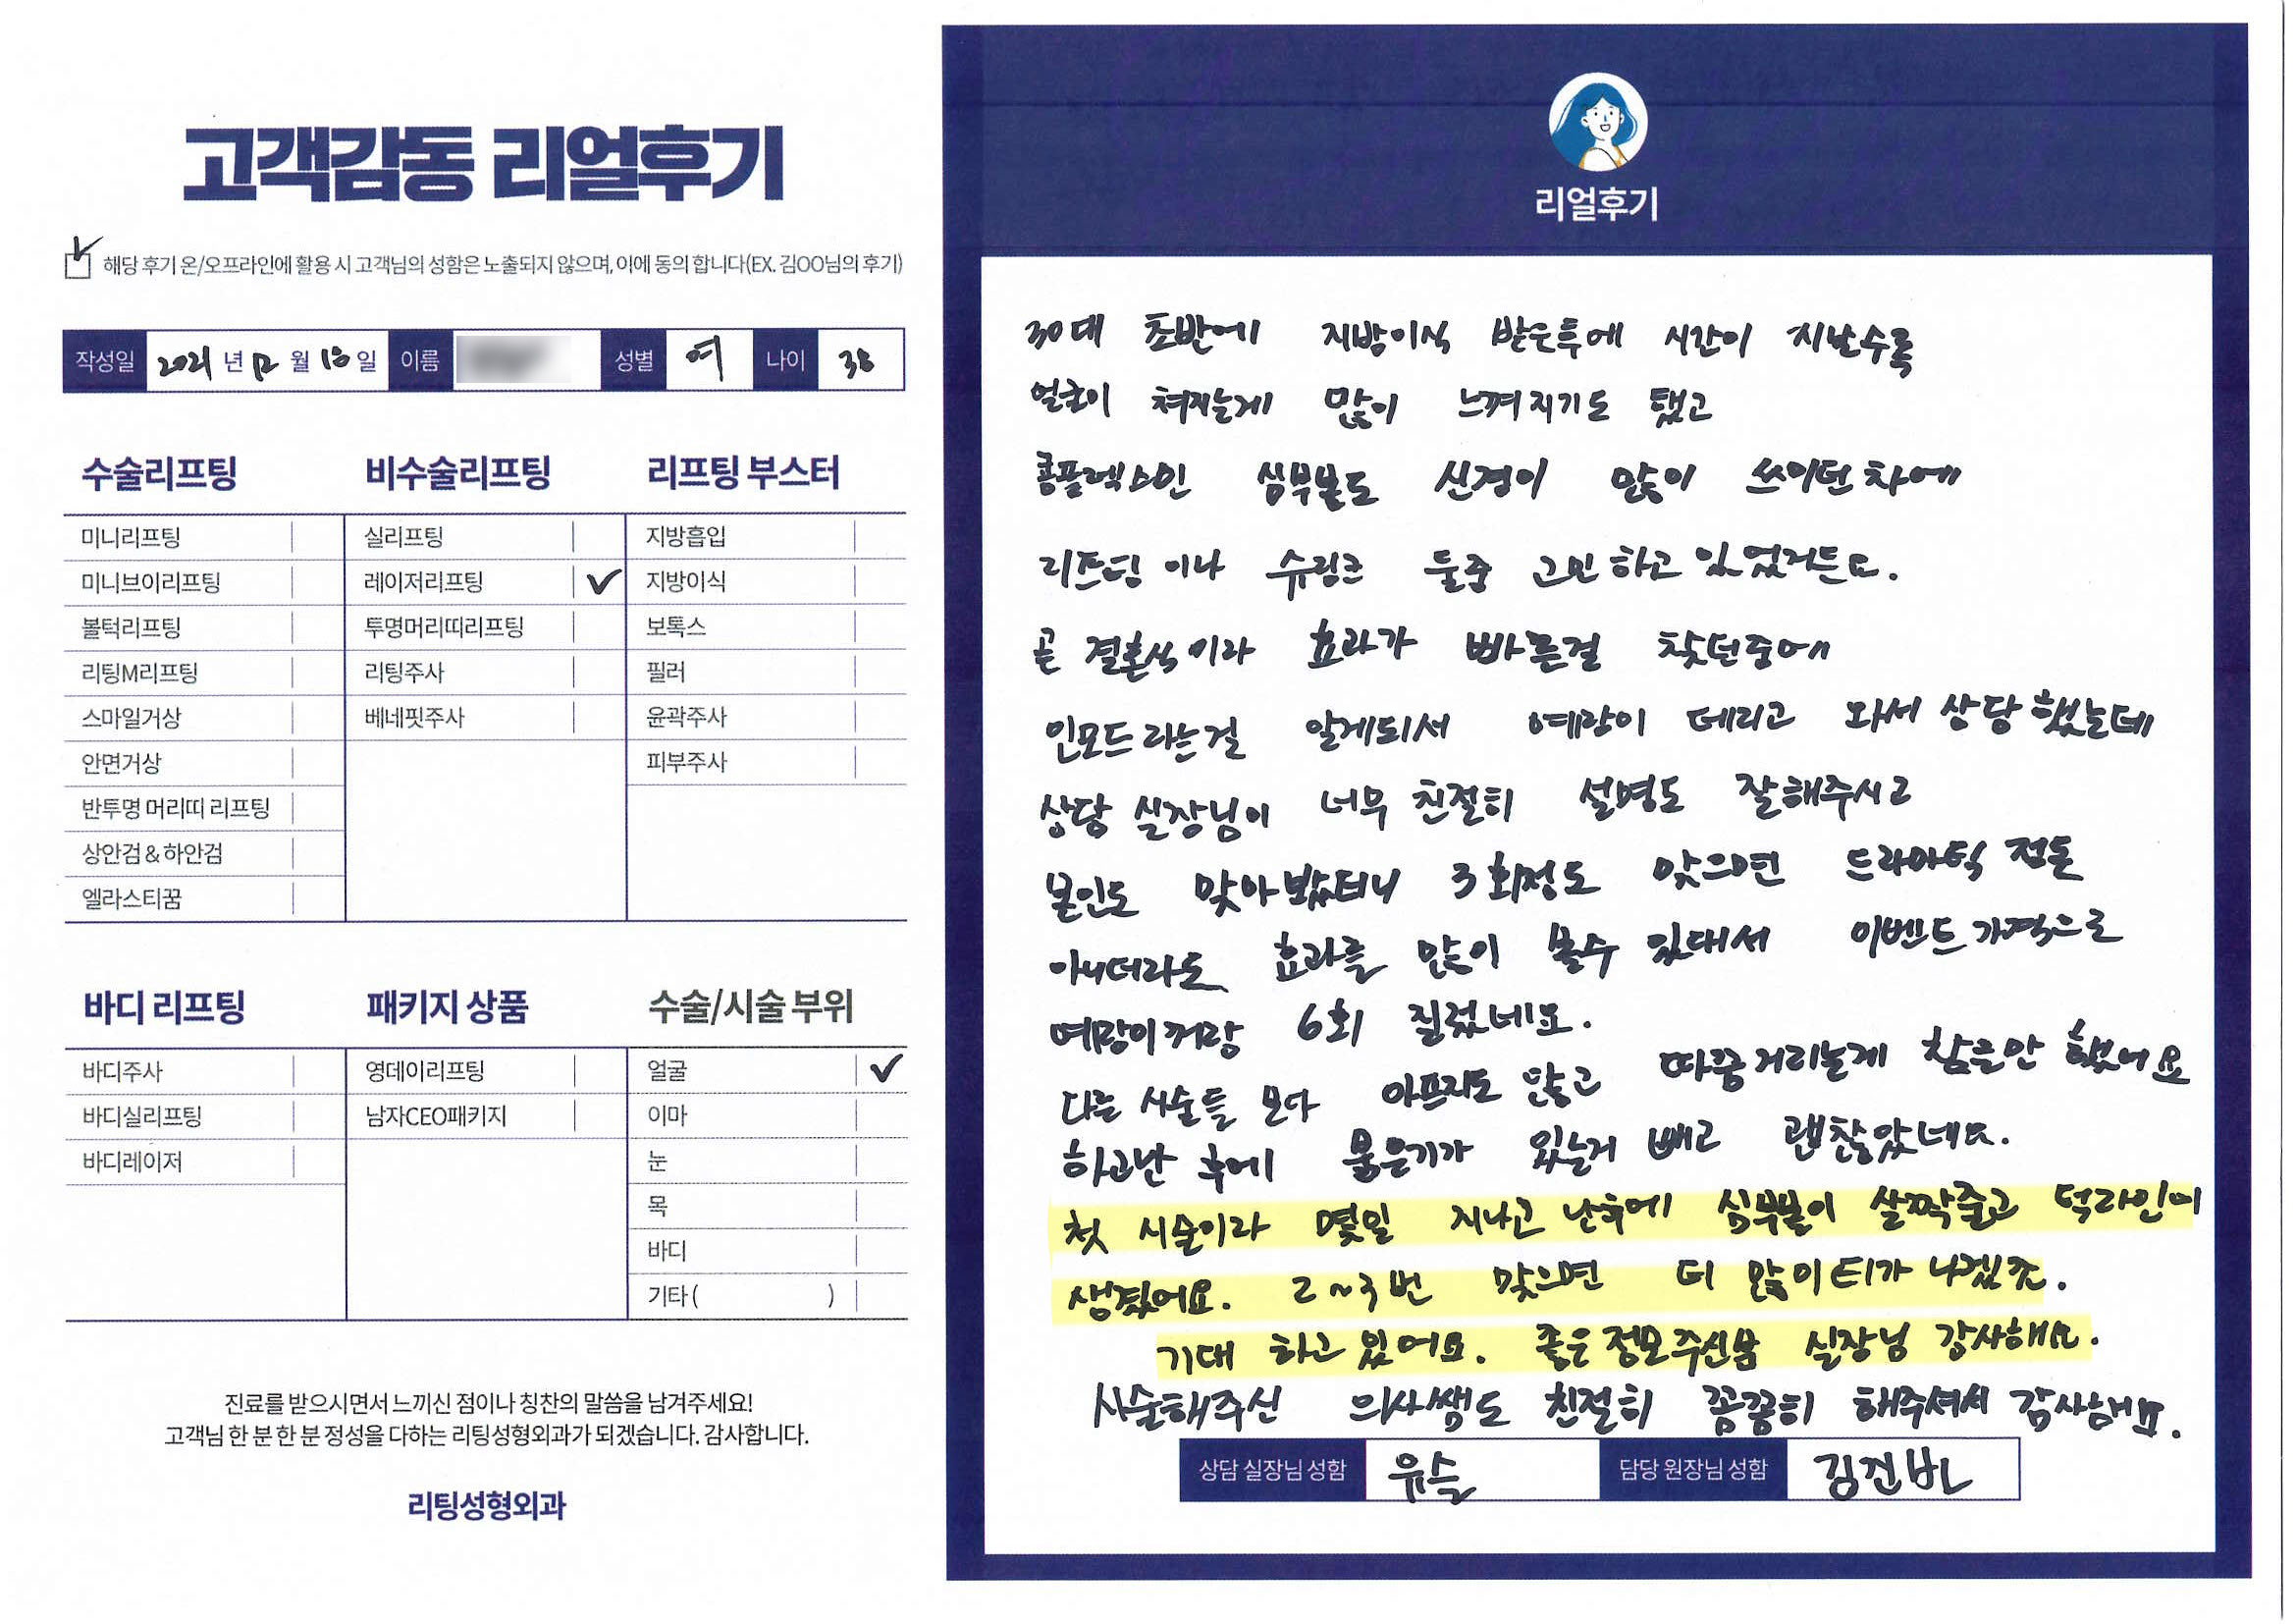 고객감동 리얼후기
해당 후기 온/오프라인에 활용 시 고객님의 성함은 노출되지 않으며, 이에 동의 합니다(EX. 김OO님의 후기)
작성일 2021 년 12 월 18 일 이름 성별 여 나이 38
수술리프팅
미니리프팅
미니브이리프팅
볼턱리프팅
리팅M리프팅
스마일거상
안면거상
반투명 머리띠 리프팅
상안검 & 하안검
엘라스티꿈
비수술리프팅
실리프팅
레이저리프팅
투명머리띠리프팅
리팅주사
베네핏주사
리프팅 부스터
지방흡입
지방이식
보톡스
필러
윤곽주사
피부주사
바디 리프팅
바디주사
바디실리프팅
바디레이저
패키지 상품
영데이리프팅
남자CEO패키지
수술/시술 부위
얼굴
이마
눈
목
바디
기타 ( )
진료를 받으시면서 느끼신 점이나 칭찬의 말씀을 남겨주세요!
고객님 한 분 한 분 정성을 다하는 리팅성형외과가 되겠습니다. 감사합니다.
리팅성형외과
리얼후기
30대 초반에 지방이식 받은후에 시간이 지날수록
얼굴이 쳐지는게 많이 느껴지기도 했고
콤플렉스인 심부볼도 신경이 많이 쓰이던 차에
리프팅 이나 슈링크 둘중 고민 하고 있었거든요.
곧 결혼식 이라 효과가 빠른걸 찾던중에
인모드 라는걸 알게되서 예랑이 데리고 와서 상담 했는데
상담 실장님이 너무 친절히 설명도 잘해주시고
본인도 맞아봤더니 3회정도 맞으면 드라마틱 정돈
아니더라도 효과를 많이 볼수 있대서 이벤트 가격으로
예랑이꺼랑 6회 질렀네요.
다른 시술들 보다 아프지도 않고 따끔거리는게 참을만 했어요
하고난 후에 붉은기가 있는거 빼고 괜찮았네요.
첫 시술이라 몇일 지나고 난후에 심부볼이 살짝줄고 턱라인이
생겼어요. 2~3번 맞으면 더 많이 티가 나겠죠.
기대 하고 있어요. 좋은 정보주신 실장님 감사해요.
시술해주신 의사쌤도 친절히 꼼꼼히 해주셔서 감사해요.
상담 실장님 성함 유슬 담당 원장님 성함